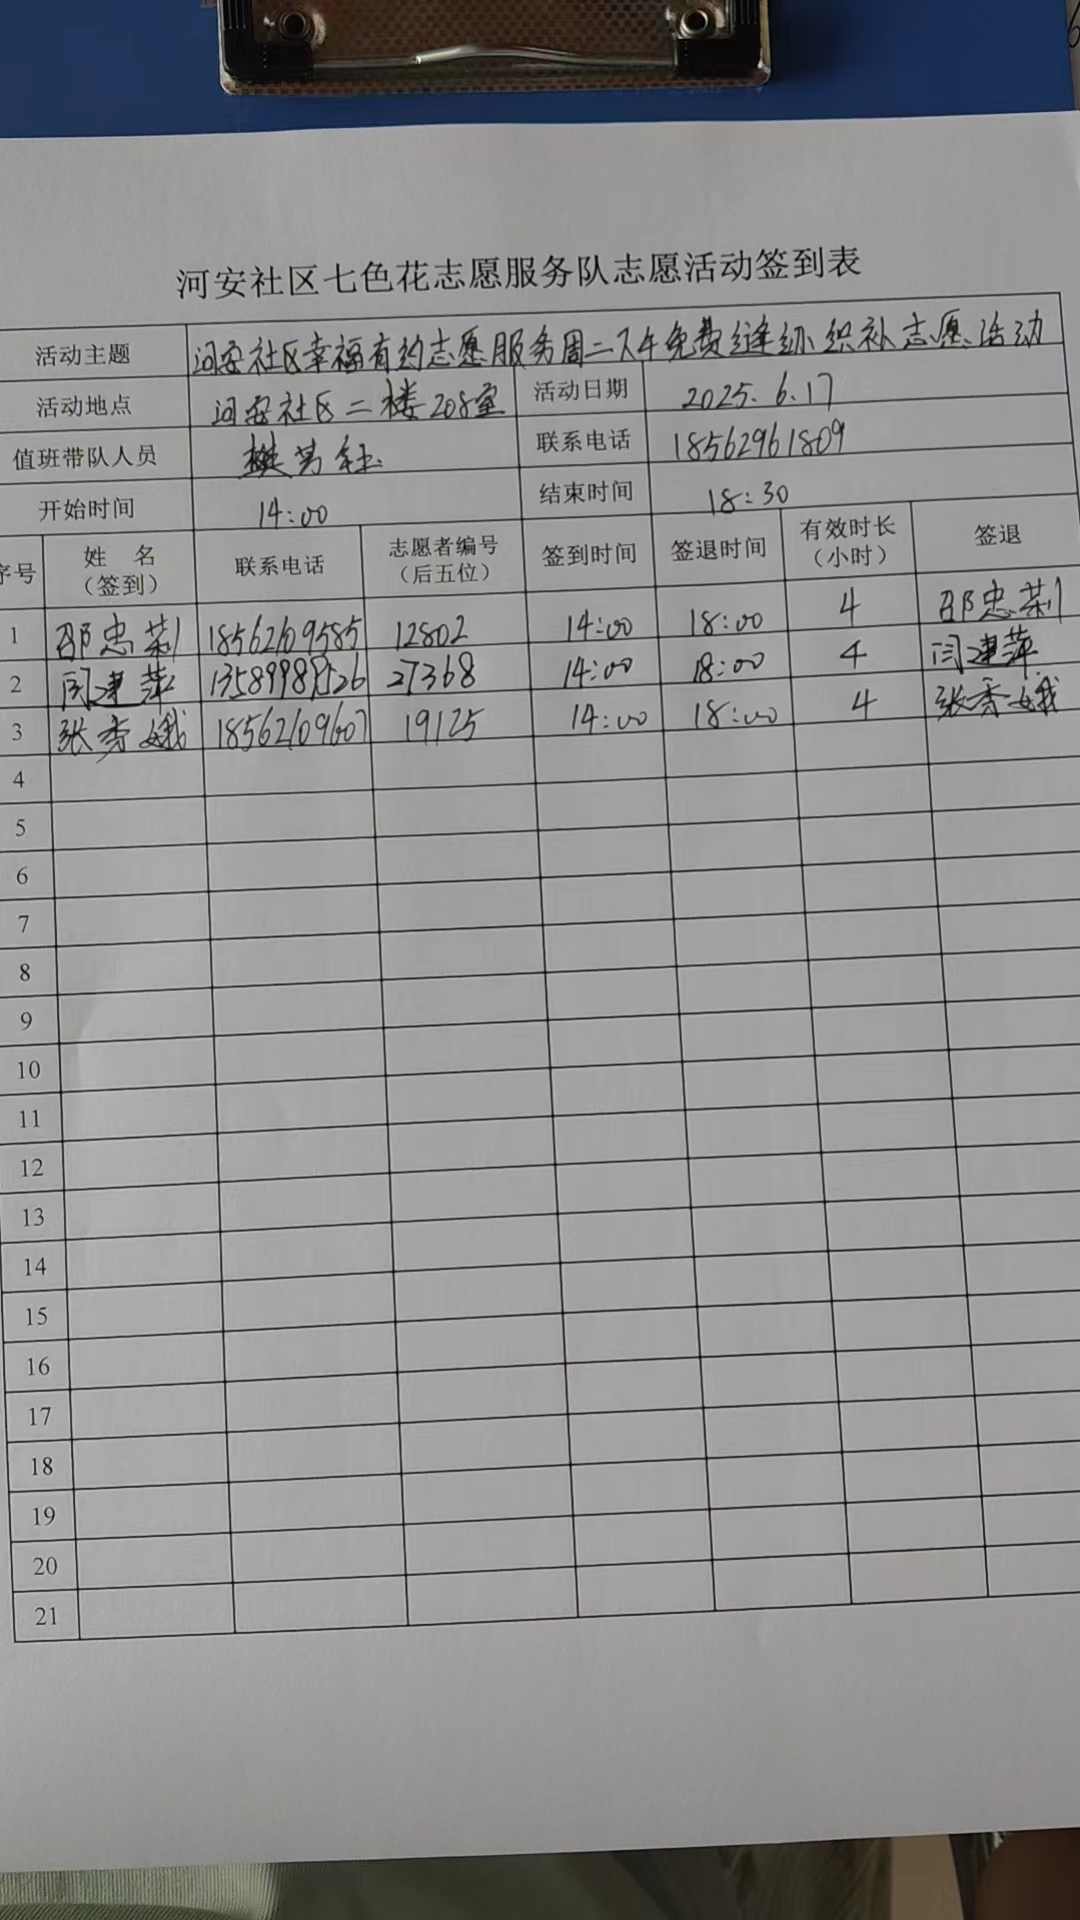 河安社区七色花志愿服务队志愿活动签到表
活动主题 河安社区幸福有约志愿服务周二下午免费缝纫织补志愿活动
活动地点 河安社区二楼208室 活动日期 2025.6.17
值班带队人员 樊芳钰 联系电话 18562961809
开始时间 14:00 结束时间 18:30
序号 姓 名（签到） 联系电话 志愿者编号（后五位） 签到时间 签退时间 有效时长（小时） 签退
1 邵忠荣 18562109585 12802 14:00 18:00 4 邵忠荣
2 闫建萍 27368 14:00 18:00 4 闫建萍
3 张秀娥 18562109607 19125 14:00 18:00 4 张秀娥
4
5
6
7
8
9
10
11
12
13
14
15
16
17
18
19
20
21